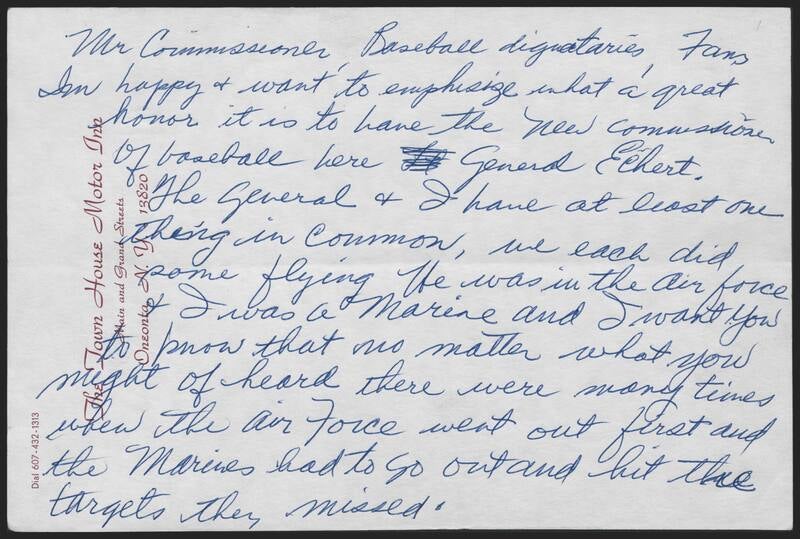 Mr Commissioner, Baseball dignataries, Fans
Im happy & want to emphisize what a great
honor it is to have the new commissioner
of baseball here General Eckert.
The General & I have at least one
thing in common, we each did
some flying He was in the air force
& I was a Marine and I want you
to know that no matter what you
might of heard there were many times
when the air Force went out first and
the Marines had to go out and hit the
targets they missed.
The Town House Motor Inn
Main and Grand Streets
Oneonta, N. Y. 13820
Dial 607-432-1313
1